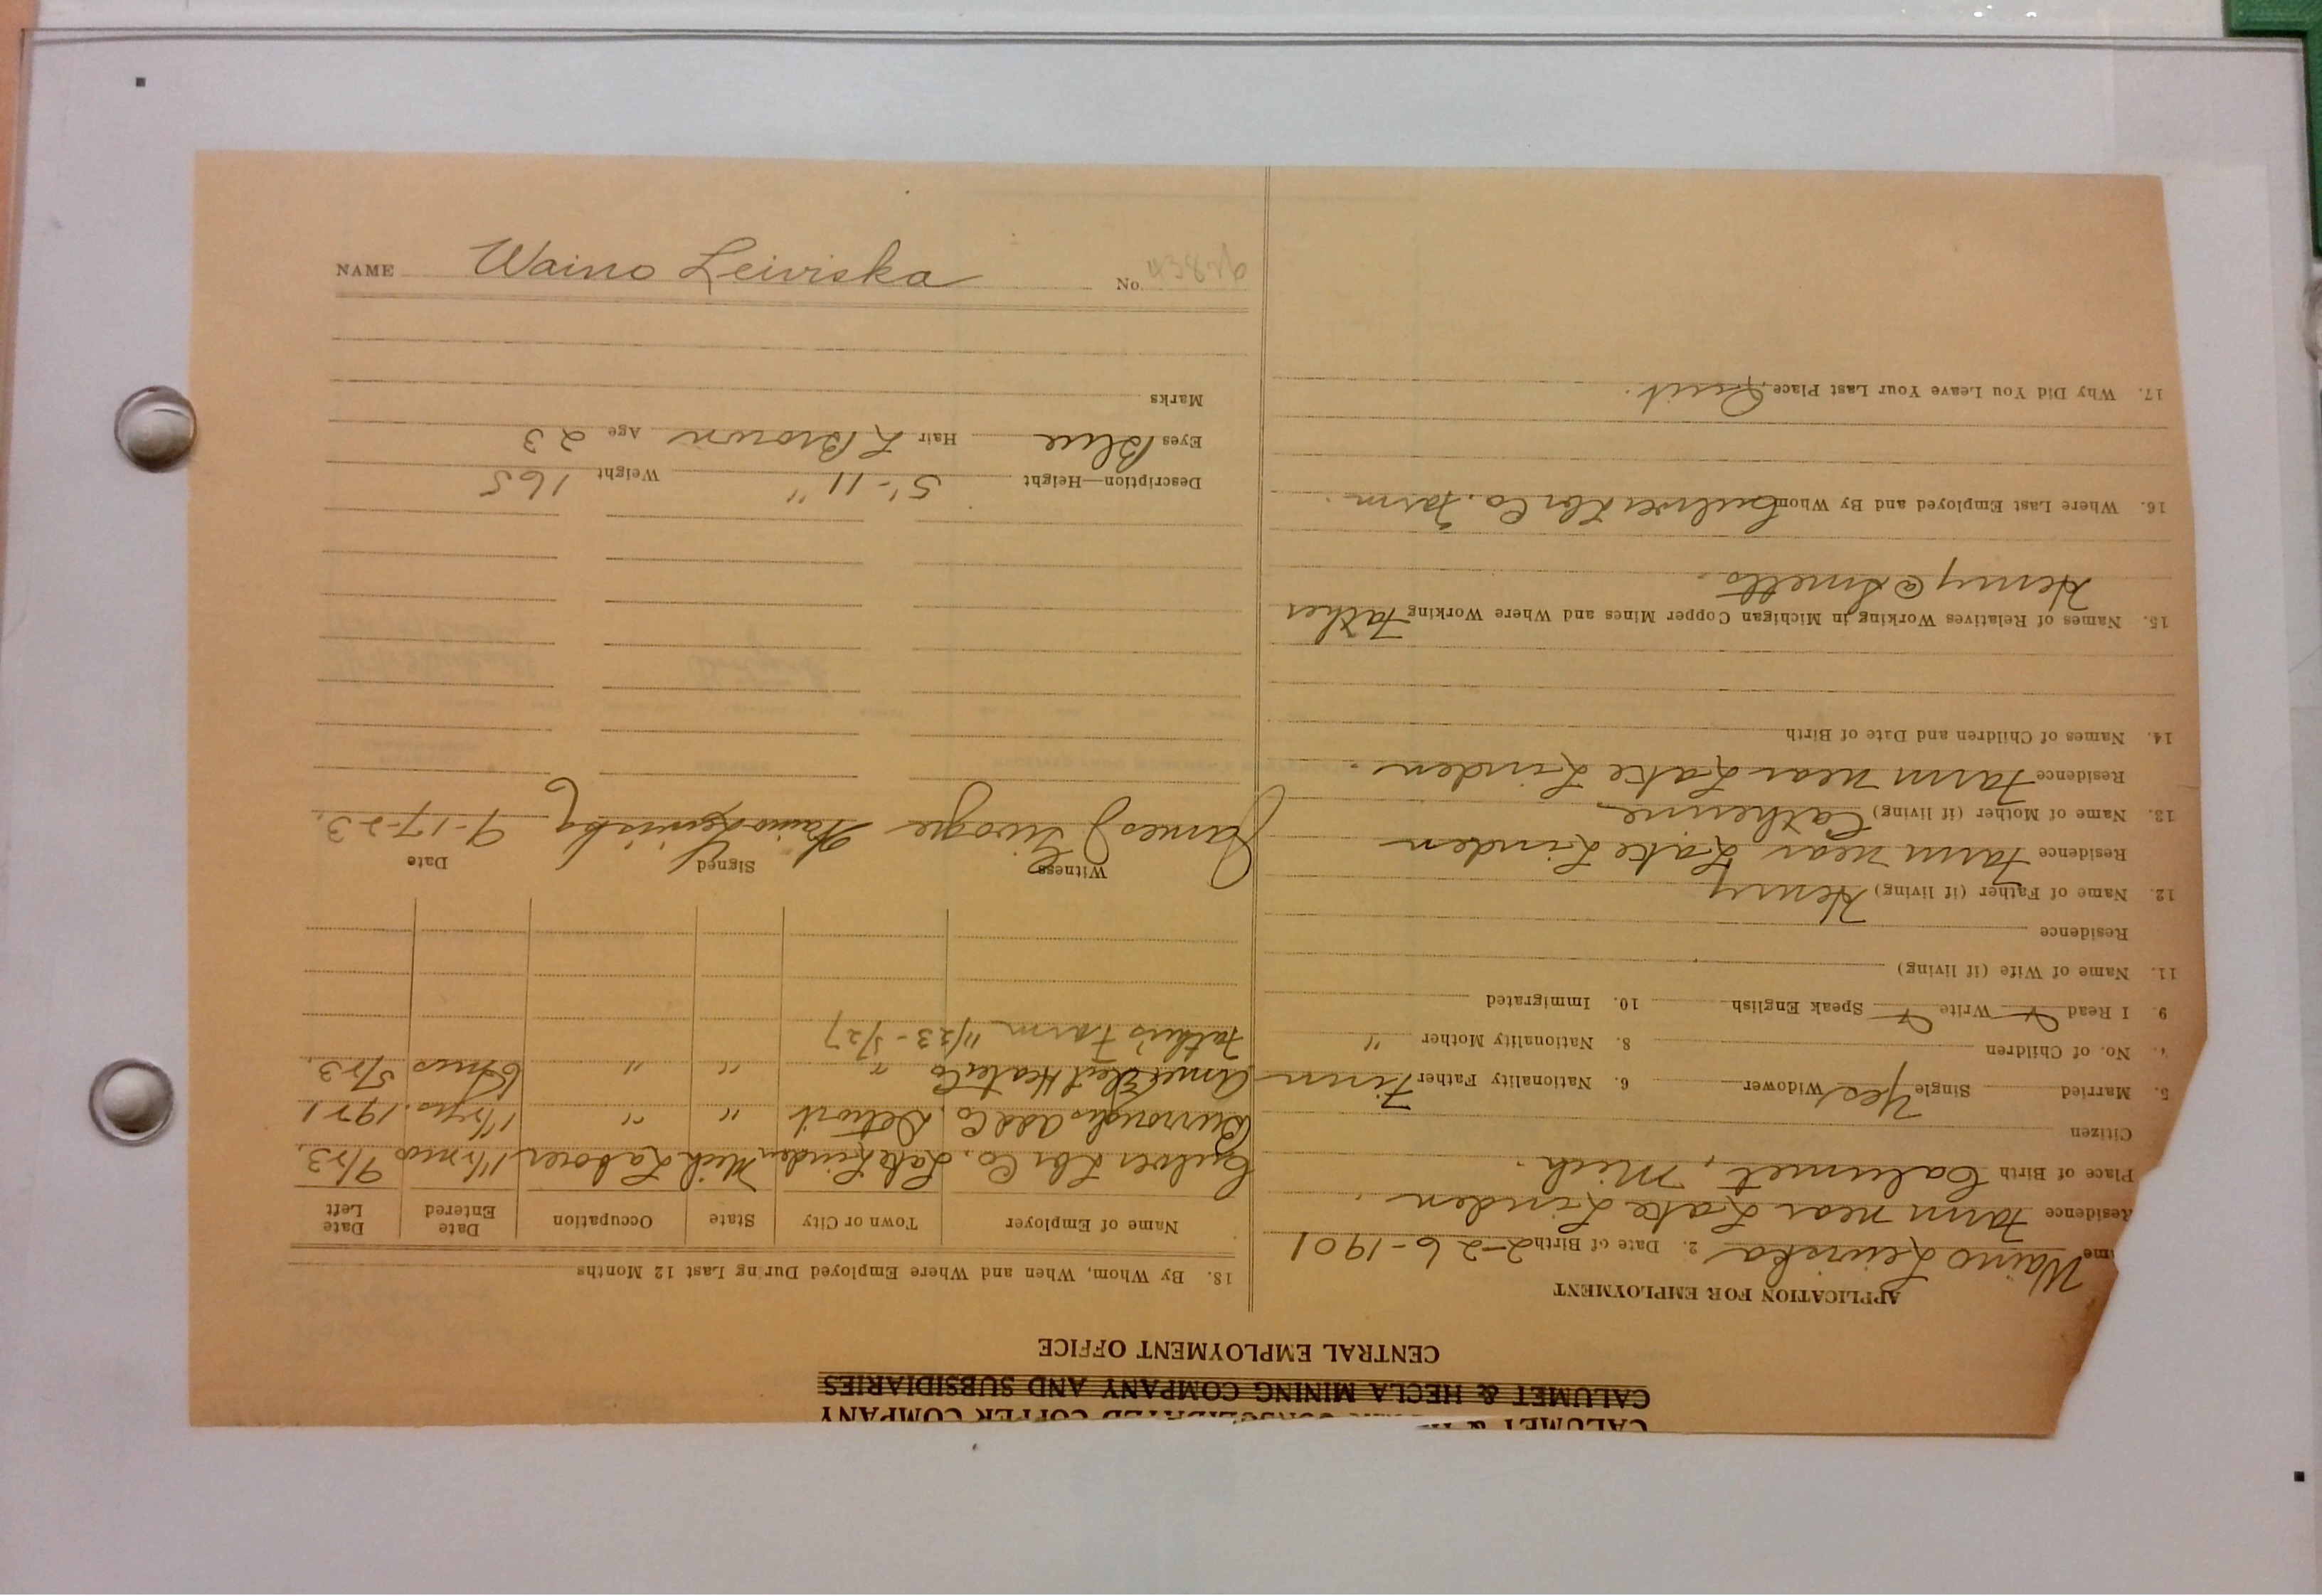 CALUMET & HECLA CONSOLIDATED COPPER COMPANY
CALUMET & HECLA MINING COMPANY AND SUBSIDIARIES
CENTRAL EMPLOYMENT OFFICE
APPLICATION FOR EMPLOYMENT
me Waino Leiviska 2. Date of Birth 2-26-1901
Residence Farm near Lake Linden.
Place of Birth Calumet, Mich.
Citizen
5. Married Single Yes Widower 6. Nationality Father Finn
No. of Children 8. Nationality Mother "
9. I Read Write Speak English 10. Immigrated
11. Name of Wife (if living)
Residence
12. Name of Father (if living) Henry
Residence Farm near Lake Linden
13. Name of Mother (if living) Catherine
Residence Farm near Lake Linden.
14. Names of Children and Date of Birth
15. Names of Relatives Working in Michigan Copper Mines and Where Working Father
Henry @ Smelts.
16. Where Last Employed and By Whom Lbr Co. Farm.
17. Why Did You Leave Your Last Place, Quit.
18. By Whom, When and Where Employed During Last 12 Months
Name of Employer Town or City State Occupation Date Entered Date Left
Lbr Co. Lake Linden Mich Laborer 1 1/2 mos 9/23.
Burroughs Add Co. Detroit " " 1 1/2 yrs. 1921
Amer Elect Heater Co " " " 6 mos 5/23.
Father's Farm 11/23 - 5/27
Witness Signed Date
James J Waino Leiviska 9-17-23.
Description—Height 5'-11" Weight 165
Eyes Blue Hair L Brown Age 23
Marks
NAME Waino Leiviska No. 43826